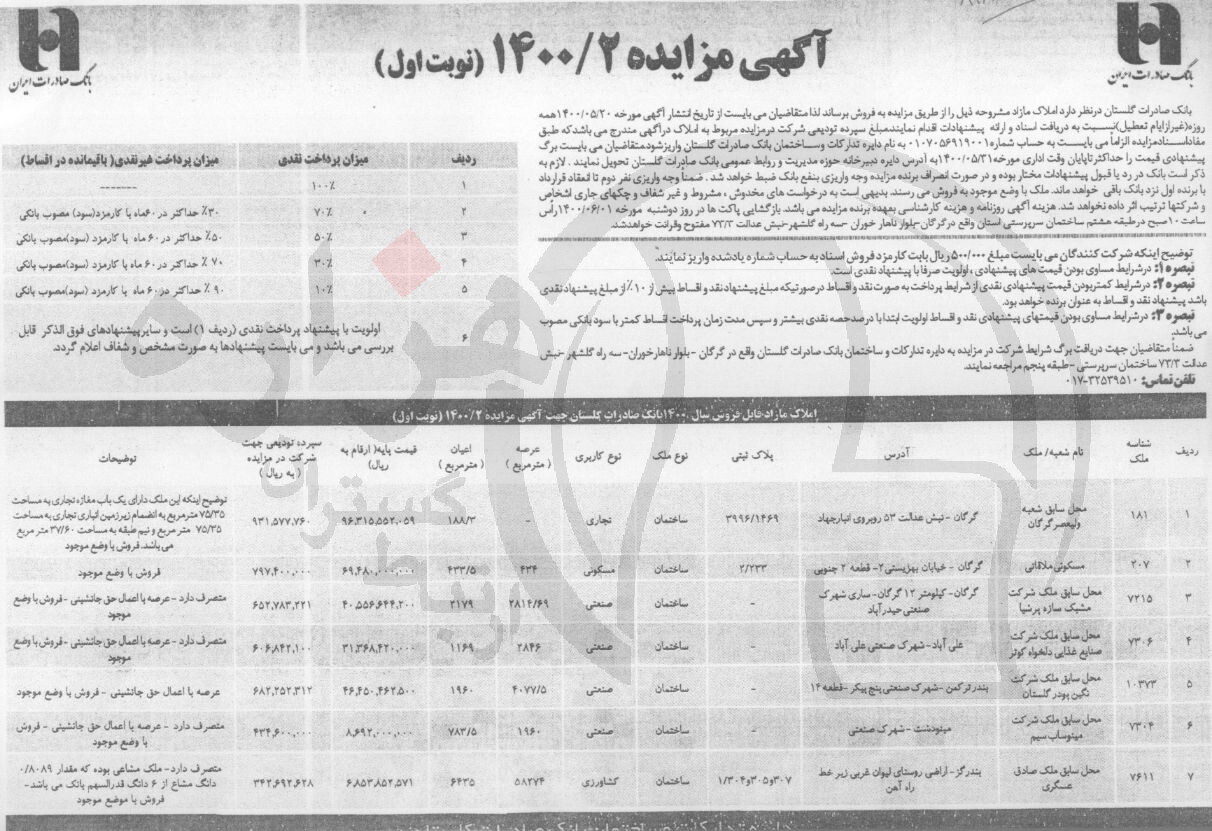 بانک صادرات ایران
آگهی مزایده ۱۴۰۰/۲ (نوبت اول)
بانک صادرات ایران
بانک صادرات گلستان درنظر دارد املاک مازاد مشروحه ذیل را از طریق مزایده به فروش برساند لذا متقاضیان می بایست از تاریخ انتشار آگهی مورخه ۱۴۰۰/۰۵/۲۰ همه
روزه(غیرازایام تعطیل)نسبت به دریافت اسناد و ارائه پیشنهادات اقدام نمایند.مبلغ سپرده تودیعی شرکت درمزایده مربوط به املاک درآگهی مندرج می باشدکه طبق
مفاداسنادمزایده الزاماً می بایست به حساب شماره ۰۱۰۷۰۵۶۹۱۹۰۰۱ به نام دایره تدارکات وساختمان بانک صادرات گلستان واریزشود.متقاضیان می بایست برگ
پیشنهادی قیمت را حداکثرتاپایان وقت اداری مورخه ۱۴۰۰/۰۵/۳۱ به آدرس دایره دبیرخانه حوزه مدیریت و روابط عمومی بانک صادرات گلستان تحویل نمایند . لازم به
ذکر است بانک در رد یا قبول پیشنهادات مختار بوده و در صورت انصراف برنده مزایده وجه واریزی بنفع بانک ضبط خواهد شد . ضمناً وجه واریزی نفر دوم تا انعقاد قرارداد
با برنده اول نزد بانک باقی خواهد ماند. ملک با وضع موجود به فروش می رسند. بدیهی است به درخواست های مخدوش ، مشروط و غیر شفاف و چکهای جاری اشخاص
و شرکتها ترتیب اثر داده نخواهد شد. هزینه آگهی روزنامه و هزینه کارشناسی بعهده برنده مزایده می باشد. بازگشایی پاکت ها در روز دوشنبه مورخه ۱۴۰۰/۰۶/۰۱رأس
ساعت ۱۰صبح درطبقه هشتم ساختمان سرپرستی استان واقع درگرگان-بلوار ناهار خوران -سه راه گلشهر-نبش عدالت ۷۳/۳ مفتوح وقرائت خواهدشد.
توضیح اینکه شرکت کنندگان می بایست مبلغ ۵۰۰/۰۰۰ ریال بابت کارمزد فروش اسناد به حساب شماره یادشده واریز نمایند.
تبصره ۱: درشرایط مساوی بودن قیمت های پیشنهادی ، اولویت صرفا با پیشنهاد نقدی است.
تبصره ۲: درشرایط کمتربودن قیمت پیشنهادی نقدی از شرایط پرداخت به صورت نقد و اقساط درصورتیکه مبلغ پیشنهاد نقد و اقساط بیش از ۱۰٪از مبلغ پیشنهاد نقدی
باشد پیشنهاد نقد و اقساط به عنوان برنده خواهد بود.
تبصره ۳: درشرایط مساوی بودن قیمتهای پیشنهادی نقد و اقساط اولویت ابتدا با درصدحصه نقدی بیشتر و سپس مدت زمان پرداخت اقساط کمتر با سود بانکی مصوب
می باشد.
ضمناً متقاضیان جهت دریافت برگ شرایط شرکت در مزایده به دایره تدارکات و ساختمان بانک صادرات گلستان واقع در گرگان - بلوار ناهارخوران-سه راه گلشهر -نبش
عدالت ۷۳/۳ ساختمان سرپرستی -طبقه پنجم مراجعه نمایند.
تلفن تماس: ۳۲۵۳۹۵۱۰-۰۱۷
ردیف میزان پرداخت نقدی میزان پرداخت غیرنقدی( باقیمانده در اقساط)
۱ ۱۰۰٪ -------
۲ ۷۰٪ ۳۰٪ حداکثر در ۶۰ماه با کارمزد(سود) مصوب بانکی
۳ ۵۰٪ ۵۰٪ حداکثر در ۶۰ ماه با کارمزد (سود)مصوب بانکی
۴ ۳۰٪ ۷۰ ٪ حداکثر در ۶۰ ماه با کارمزد (سود)مصوب بانکی
۵ ۱۰٪ ۹۰ ٪ حداکثر در ۶۰ ماه با کارمزد (سود)مصوب بانکی
۶ اولویت با پیشنهاد پرداخت نقدی (ردیف ۱) است و سایرپیشنهادهای فوق الذکر قابل
بررسی می باشد و می بایست پیشنهادها به صورت مشخص و شفاف اعلام گردد.
املاک مازاد قابل فروش سال ۱۴۰۰بانک صادرات گلستان جهت آگهی مزایده ۱۴۰۰/۲ (نوبت اول)
ردیف شناسه ملک نام شعبه/ ملک آدرس پلاک ثبتی نوع ملک نوع کاربری عرصه ( مترمربع ) اعیان ( مترمربع ) قیمت پایه( ارقام به ریال) سپرده تودیعی جهت شرکت در مزایده ( به ریال ) توضیحات
۱ ۱۸۱ محل سابق شعبه ولیعصر گرگان گرگان - نبش عدالت ۵۳ روبروی انبارجهاد ۳۹۹۶/۱۴۶۹ ساختمان تجاری - ۱۸۸/۳ ۹۶,۳۱۵,۵۵۲,۰۵۹ ۹۳۱,۵۷۷,۷۶۰ توضیح اینکه این ملک دارای یک باب مغازه تجاری به مساحت ۷۵/۳۵ مترمربع به انضمام زیرزمین انباری تجاری به مساحت ۷۵/۳۵ متر مربع و نیم طبقه به مساحت ۳۷/۶۰ متر مربع می باشد. فروش با وضع موجود
۲ ۲۰۷ مسکونی ملاقاتی گرگان - خیابان بهزیستی۲- قطعه ۲ جنوبی ۲/۲۳۳ ساختمان مسکونی ۴۳۴ ۴۳۳/۵ ۶۹,۴۸۰,۰۰۰,۰۰۰ ۷۹۷,۴۰۰,۰۰۰ فروش با وضع موجود
۳ ۷۲۱۵ محل سابق ملک شرکت مشبک سازه پرشیا گرگان- کیلومتر ۱۲ گرگان- ساری شهرک صنعتی حیدرآباد - ساختمان صنعتی ۲۸۱۴/۶۹ ۲۱۷۹ ۴۰,۵۵۶,۶۴۴,۲۰۰ ۶۵۲,۷۸۳,۲۲۱ متصرف دارد - عرصه با اعمال حق جانشینی -فروش با وضع موجود
۴ ۷۳۰۶ محل سابق ملک شرکت صنایع غذایی دلخواه کوثر علی آباد- شهرک صنعتی علی آباد - ساختمان صنعتی ۲۸۴۶ ۱۱۶۹ ۳۱,۳۶۸,۴۲۰,۰۰۰ ۶۰۶,۸۴۲,۱۰۰ متصرف دارد - عرصه با اعمال حق جانشینی -فروش با وضع موجود
۵ ۱۰۳۷۳ محل سابق ملک شرکت نگین پودر گلستان بندرترکمن -شهرک صنعتی پنج پیکر -قطعه ۱۴ - ساختمان صنعتی ۴۰۷۷/۵ ۱۹۶۰ ۴۶,۴۵۰,۴۶۲,۵۰۰ ۶۸۲,۲۵۲,۳۱۲ عرصه با اعمال حق جانشینی - فروش با وضع موجود
۶ ۷۳۰۴ محل سابق ملک شرکت مینوساب سیم مینودشت -شهرک صنعتی - ساختمان صنعتی ۱۹۶۰ ۷۸۳/۵ ۸,۶۹۲,۰۰۰,۰۰۰ ۴۳۴,۶۰۰,۰۰۰ متصرف دارد - عرصه با اعمال حق جانشینی - فروش با وضع موجود
۷ ۷۶۱۱ محل سابق ملک صادق عسگری بندرگز- اراضی روستای لیوان غربی زیر خط راه آهن ۳۰۷و۳۰۵و۱/۳۰۴ ساختمان کشاورزی ۵۸۲۷۴ ۶۴۳۵ ۶,۸۵۳,۸۵۲,۵۷۱ ۳۴۲,۶۹۲,۶۲۸ متصرف دارد- ملک مشاعی بوده که مقدار ۰/۸۰۸۹ دانگ مشاع از ۶ دانگ قدرالسهم بانک می باشد- فروش با موضع موجود